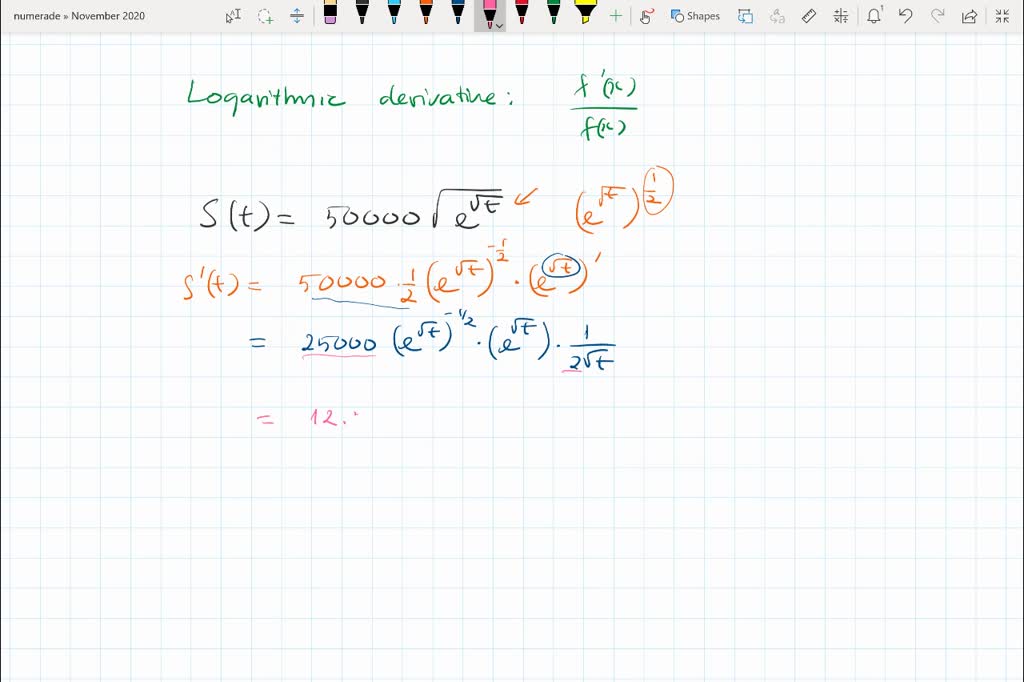 numerade » November 2020
Shapes
Logarithmic derivative: f'(x)/f(x)
S(t) = 50000 √(e^√t) ↙ (e^√t)^(1/2)
S'(t) = 50000 · 1/2 (e^√t)^(-1/2) · (e^√t)'
= 25000 (e^√t)^(-1/2) · (e^√t) · 1/(2√t)
= 12.